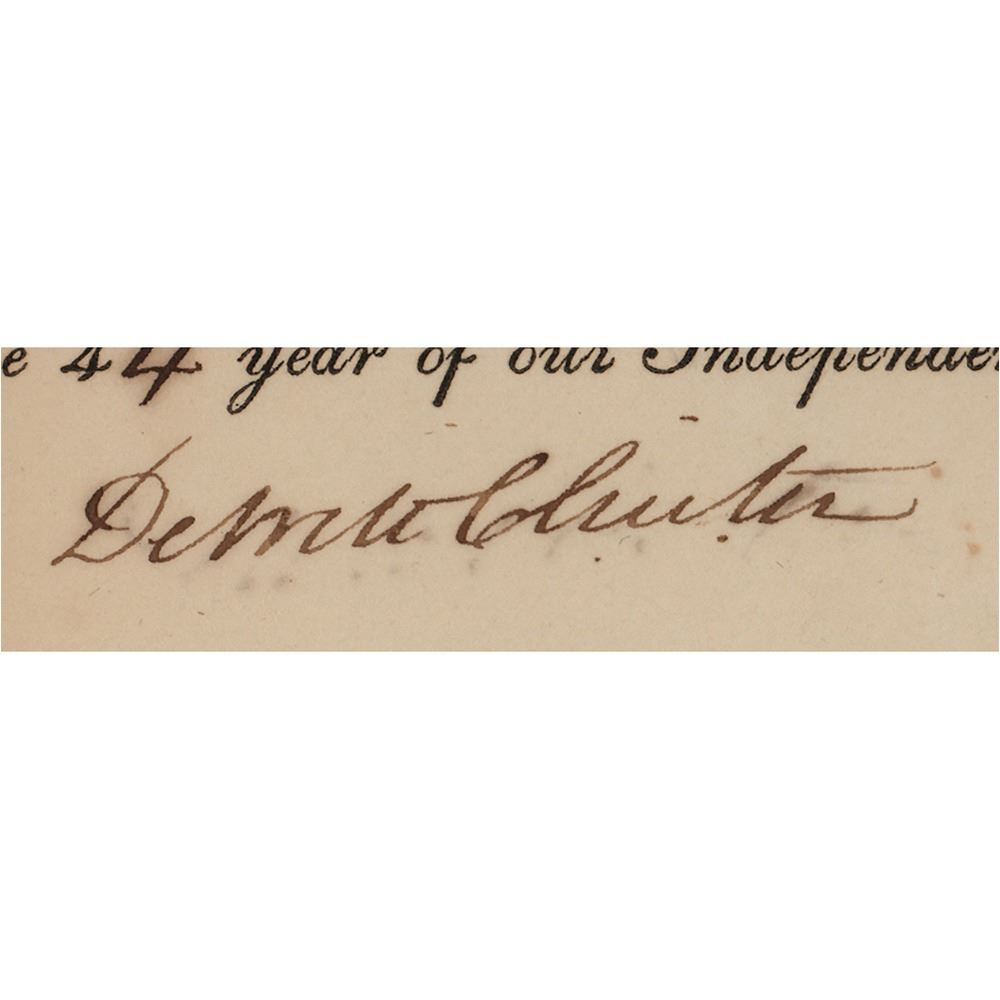 e 44 year of our Independen
DeWitt Clinton